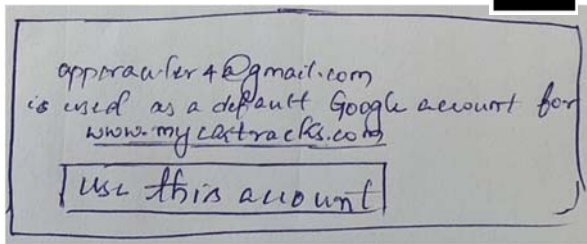 appcrawler4@gmail.com
is used as a default Google account for
www.mycartracks.com
Use this account